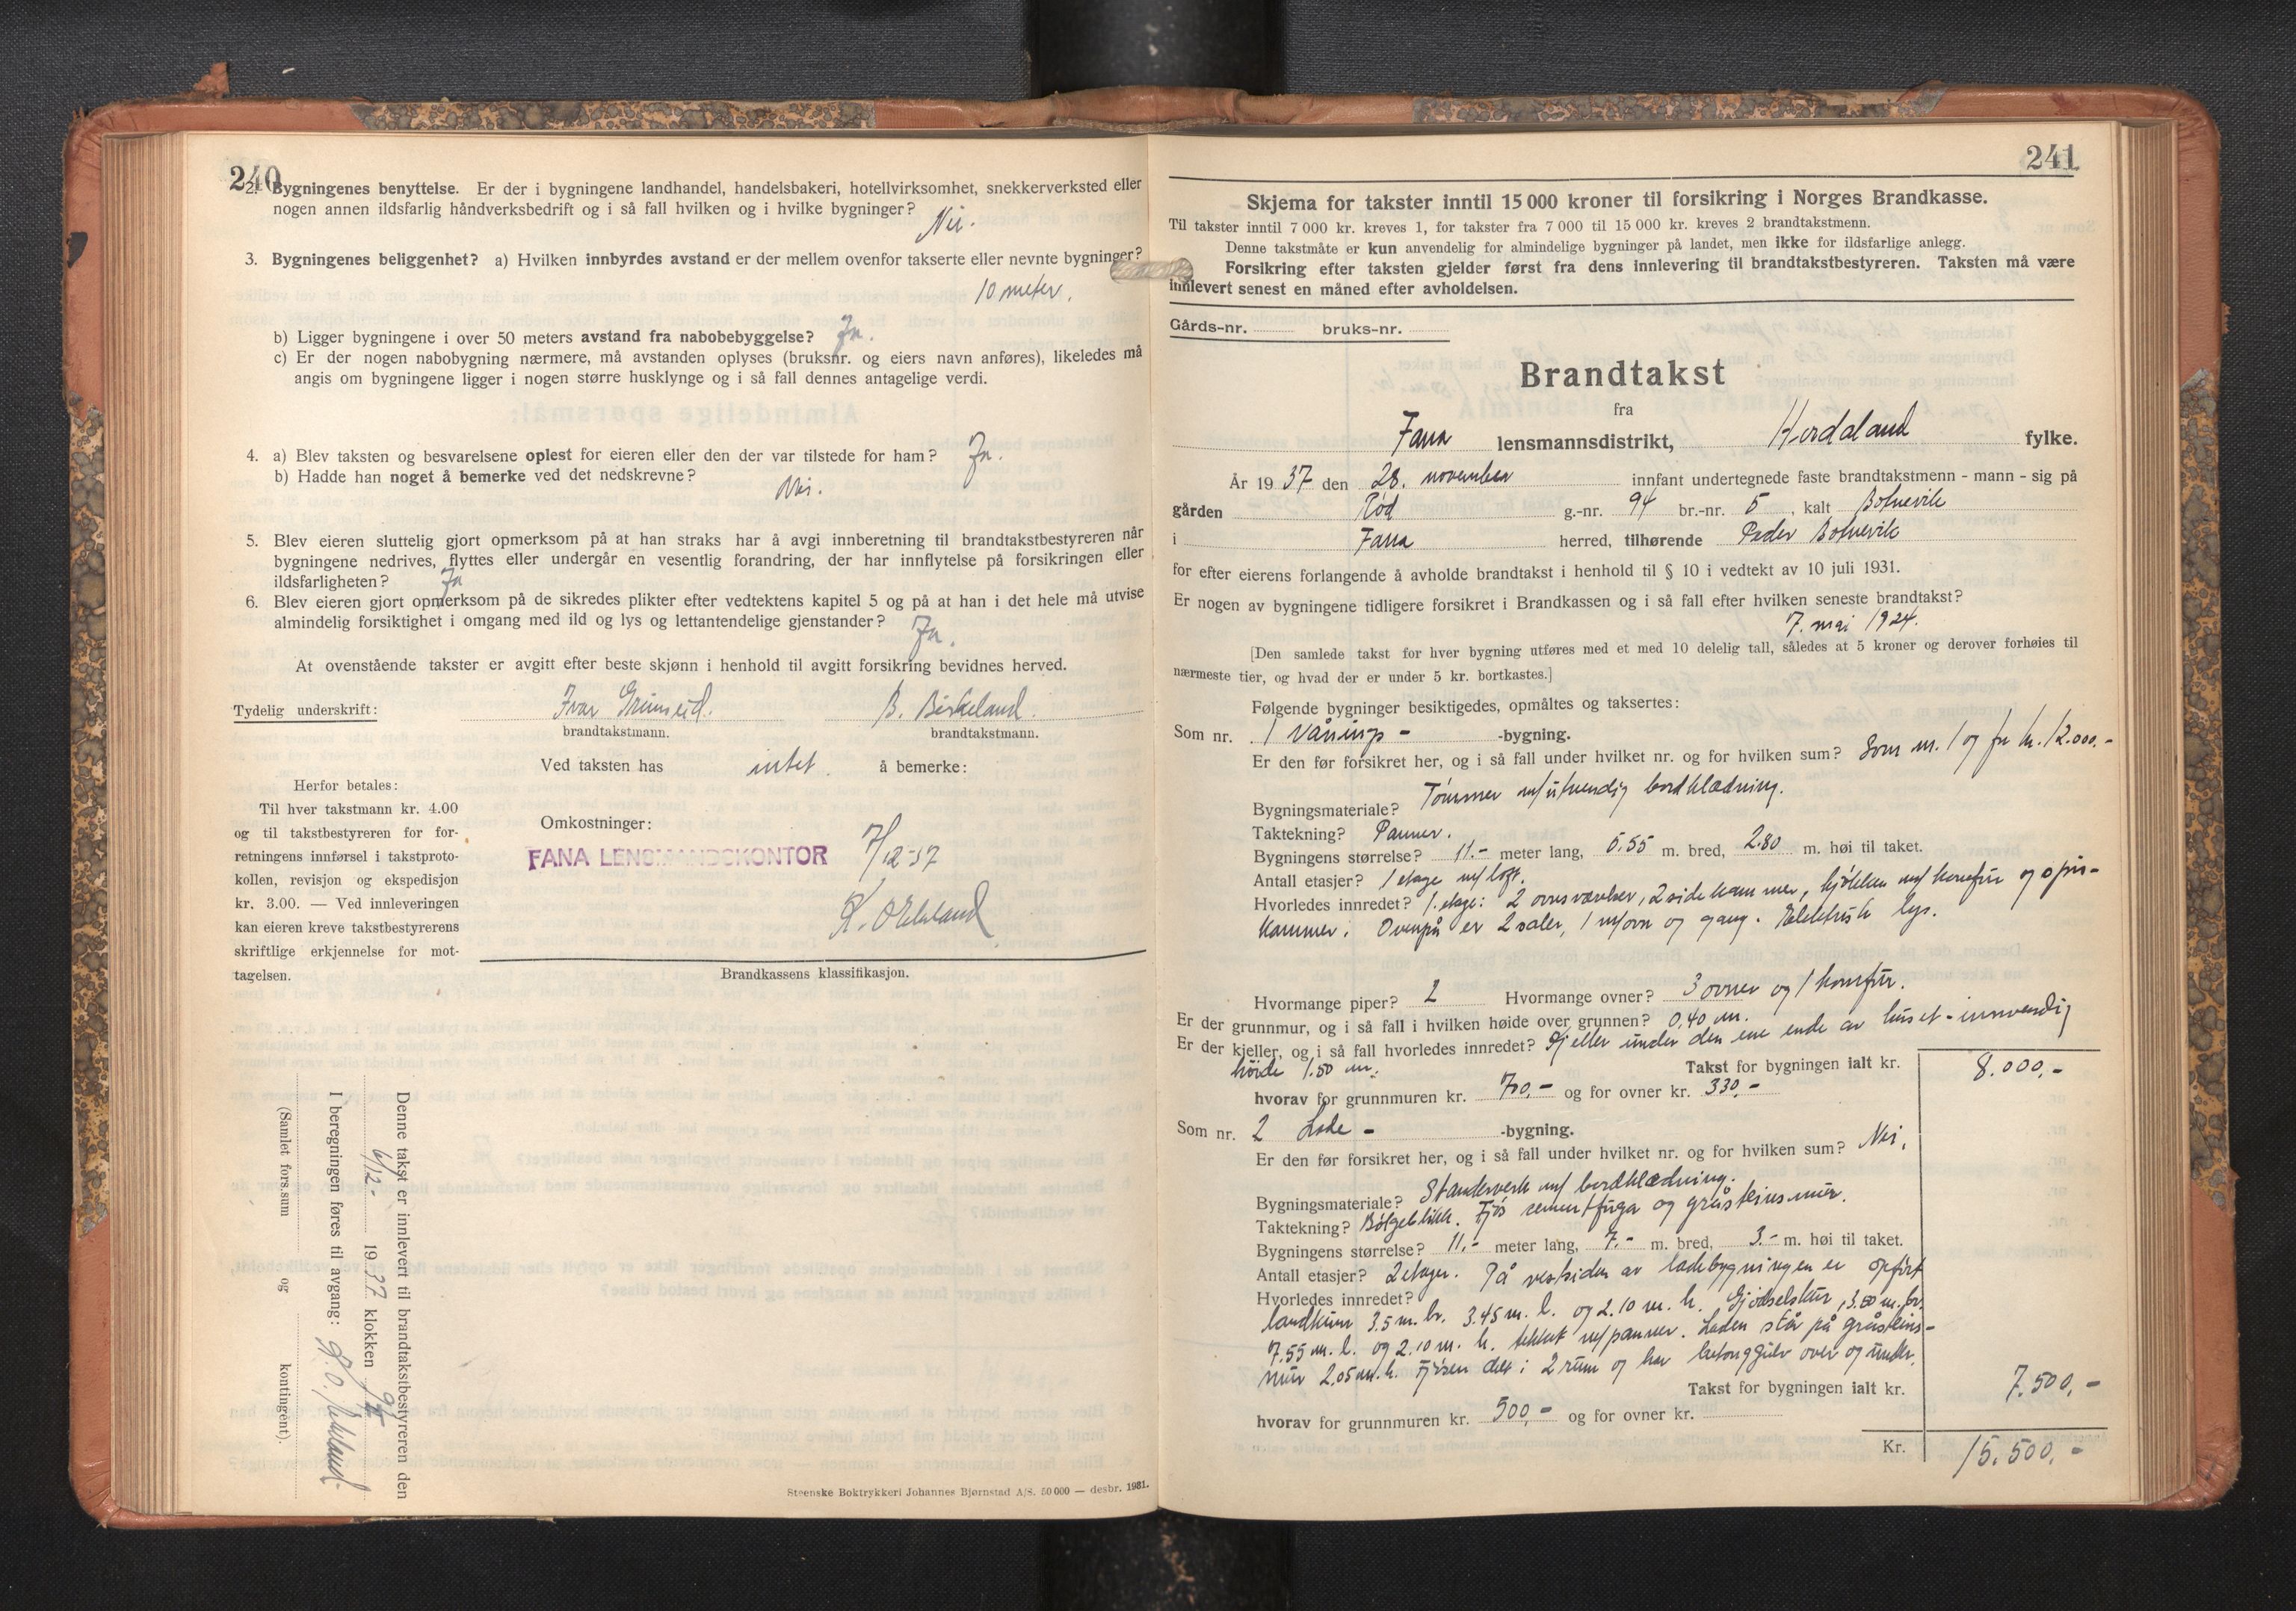 240
2. Bygningenes benyttelse. Er der i bygningene landhandel, handelsbakeri, hotellvirksomhet, snekkerverksted eller
nogen annen ildsfarlig håndverksbedrift og i så fall hvilken og i hvilke bygninger?
Nei.
3. Bygningenes beliggenhet? a) Hvilken innbyrdes avstand er der mellem ovenfor takserte eller nevnte bygninger?
10 meter.
b) Ligger bygningene i over 50 meters avstand fra nabobebyggelse? Ja.
c) Er der nogen nabobygning nærmere, må avstanden oplyses (bruksnr. og eiers navn anføres), likeledes må
angis om bygningene ligger i nogen større husklynge og i så fall dennes antagelige verdi.
4. a) Blev taksten og besvarelsene oplest for eieren eller den der var tilstede for ham? Ja.
b) Hadde han noget å bemerke ved det nedskrevne?
Nei.
5. Blev eieren sluttelig gjort opmerksom på at han straks har å avgi innberetning til brandtakstbestyreren når
bygningene nedrives, flyttes eller undergår en vesentlig forandring, der har innflytelse på forsikringen eller
ildsfarligheten? Ja
6. Blev eieren gjort opmerksom på de sikredes plikter efter vedtektens kapitel 5 og på at han i det hele må utvise
almindelig forsiktighet i omgang med ild og lys og lettantendelige gjenstander?
Ja.
At ovenstående takster er avgitt efter beste skjønn i henhold til avgitt forsikring bevidnes herved.
Tydelig underskrift: Ivar Grimseid. B. Birkeland.
brandtakstmann. brandtakstmann.
Ved taksten has intet å bemerke:
Herfor betales:
Til hver takstmann kr. 4.00
og til takstbestyreren for for-
retningens innførsel i takstproto-
kollen, revisjon og ekspedisjon
kr. 3.00. — Ved innleveringen
kan eieren kreve takstbestyrerens
skriftlige erkjennelse for mot-
tagelsen.
Omkostninger:
FANA LENSMANDSKONTOR 7/12-37
Brandkassens klassifikasjon.
Denne takst er innlevert til brandtakstbestyreren den
6/12- 1937 klokken
I beregningen føres til avgang:
(Samlet fors.sum og kontingent).
Steenske Boktrykkeri Johannes Bjørnstad A/S. 50 000 — desbr. 1931.
241
Skjema for takster inntil 15 000 kroner til forsikring i Norges Brandkasse.
Til takster inntil 7 000 kr. kreves 1, for takster fra 7 000 til 15 000 kr. kreves 2 brandtakstmenn.
Denne takstmåte er kun anvendelig for almindelige bygninger på landet, men ikke for ildsfarlige anlegg.
Forsikring efter taksten gjelder først fra dens innlevering til brandtakstbestyreren. Taksten må være
innlevert senest en måned efter avholdelsen.
Gårds-nr. bruks-nr.
Brandtakst
fra
Fana lensmannsdistrikt, Hordaland fylke.
År 1937 den 28. november innfant undertegnede faste brandtakstmenn - mann - sig på
gården Rød g.-nr. 94 br.-nr. 5, kalt Botnevik
i Fana herred, tilhørende Peder Botnevik
for efter eierens forlangende å avholde brandtakst i henhold til § 10 i vedtekt av 10 juli 1931.
Er nogen av bygningene tidligere forsikret i Brandkassen og i så fall efter hvilken seneste brandtakst?
7. mai 1924.
[Den samlede takst for hver bygning utføres med et med 10 delelig tall, således at 5 kroner og derover forhøies til
nærmeste tier, og hvad der er under 5 kr. bortkastes.]
Følgende bygninger besiktigedes, opmåltes og taksertes:
Som nr. 1 Vånings- -bygning.
Er den før forsikret her, og i så fall under hvilket nr. og for hvilken sum? Som nr. 1 og for kr. 12.000.-
Bygningsmateriale? Tømmer m/utvendig bordklædning.
Taktekning? Panner.
Bygningens størrelse? 11.- meter lang, 5.55 m. bred, 2.80 m. høi til taket.
Antall etasjer? 1 etage m/loft.
Hvorledes innredet? 1. etage: 2 ovnsværelser, 2 sidekammer, kjøkken m/komfür og spis-
kammer. Ovenpå er 2 saler, 1 m/ovn og gang. Elektrisk lys.
Hvormange piper? 2 Hvormange ovner? 3 ovner og 1 komfür.
Er der grunnmur, og i så fall i hvilken høide over grunnen? 0,40 m.
Er der kjeller, og i så fall hvorledes innredet? Kjeller under den ene ende av huset - innvendig
høide 1.50 m.
Takst for bygningen ialt kr. 8.000,-
hvorav for grunnmuren kr. 700,- og for ovner kr. 330,-
Som nr. 2 Lade - -bygning.
Er den før forsikret her, og i så fall under hvilket nr. og for hvilken sum? Nei.
Bygningsmateriale? Standerverk m/ bordklædning.
Taktekning? Bølgeblikk. Fjøs sementfuga og gråsteinsmur.
Bygningens størrelse? 11.- meter lang, 7.- m. bred, 3.- m. høi til taket.
Antall etasjer? 2 etager. På vestsiden av ladebygningen er opført
Hvorledes innredet?
landkum 3.5 m. br. 3.45 m. l. og 2.10 m. h. Gjødselskur, 3.50 m. br.
7.55 m. l. og 2.10 m. h. tekket m/panner. Laden står på gråsteins-
mur 2.05 m. h. Fjøsen delt i 2 rum og har betonggulv over og under.
Takst for bygningen ialt kr. 7.500,-
hvorav for grunnmuren kr. 500,- og for ovner kr.
Kr. 15.500,-